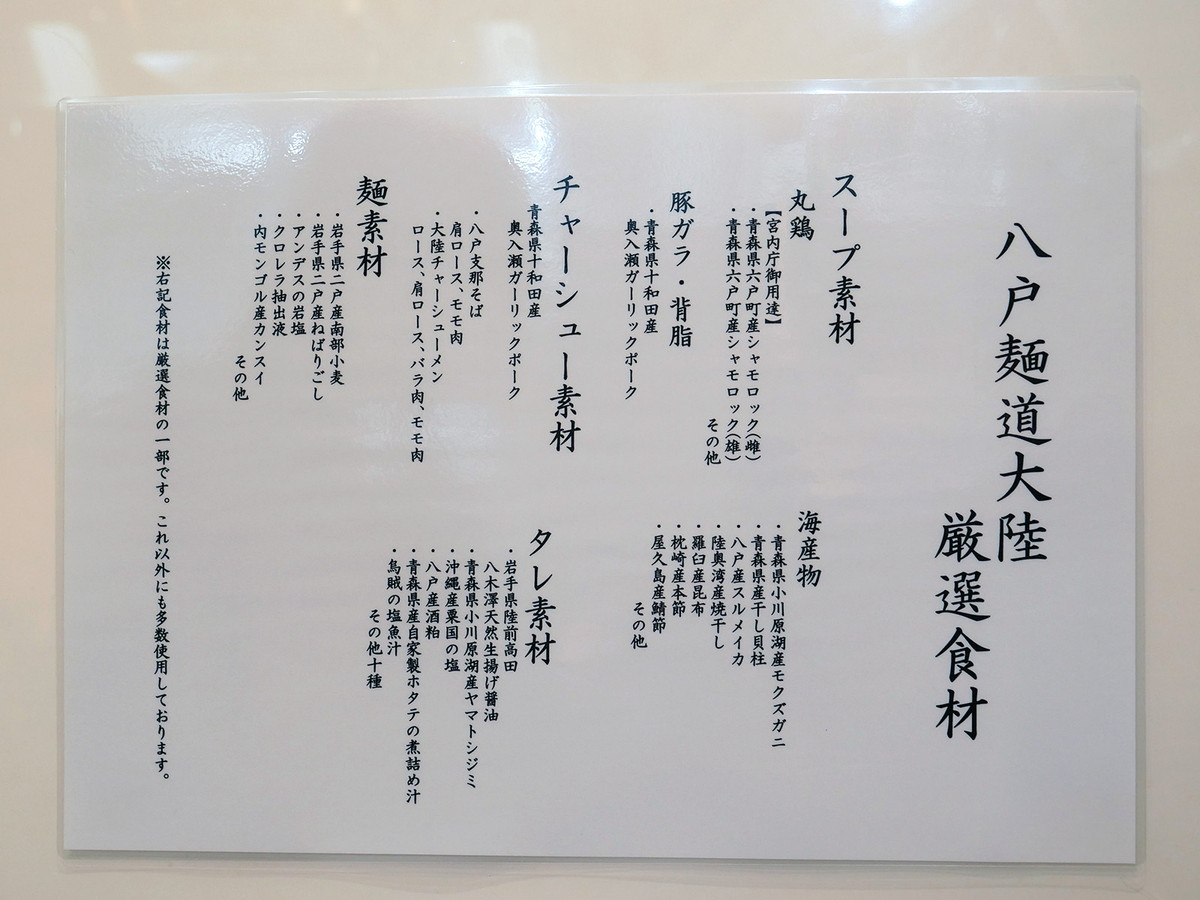 八戸麺道大陸
厳選食材
スープ素材
丸鶏
【宮内庁御用達】
・青森県六戸町産シャモロック(雌)
・青森県六戸町産シャモロック(雄)
その他
豚ガラ・背脂
・青森県十和田産
奥入瀬ガーリックポーク
海産物
・青森県小川原湖産モクズガニ
・青森県産干し貝柱
・八戸産スルメイカ
・陸奥湾産焼干し
・羅臼産昆布
・枕崎産本節
・屋久島産鯖節
その他
チャーシュー素材
青森県十和田産
奥入瀬ガーリックポーク
・八戸支那そば
肩ロース、モモ肉
・大陸チャーシューメン
ロース、肩ロース、バラ肉、モモ肉
タレ素材
・岩手県陸前高田
八木澤天然生揚げ醤油
・青森県小川原湖産ヤマトシジミ
・沖縄産粟国の塩
・八戸産酒粕
・青森県産自家製ホタテの煮詰め汁
・烏賊の塩魚汁
その他十種
麺素材
・岩手県二戸産南部小麦
・岩手県二戸産ねばりごし
・アンデスの岩塩
・クロレラ抽出液
・内モンゴル産カンスイ
その他
※右記食材は厳選食材の一部です。これ以外にも多数使用しております。